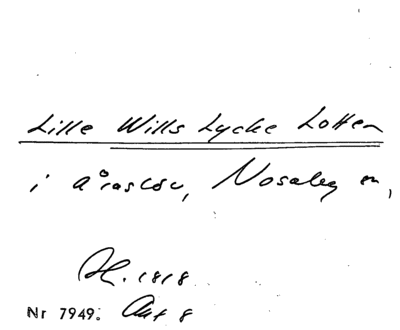 Lille Wills Lycke Lotten
i Åraslöv, Nosaby sn,
H. 1818
Nr 7949. Akt 8